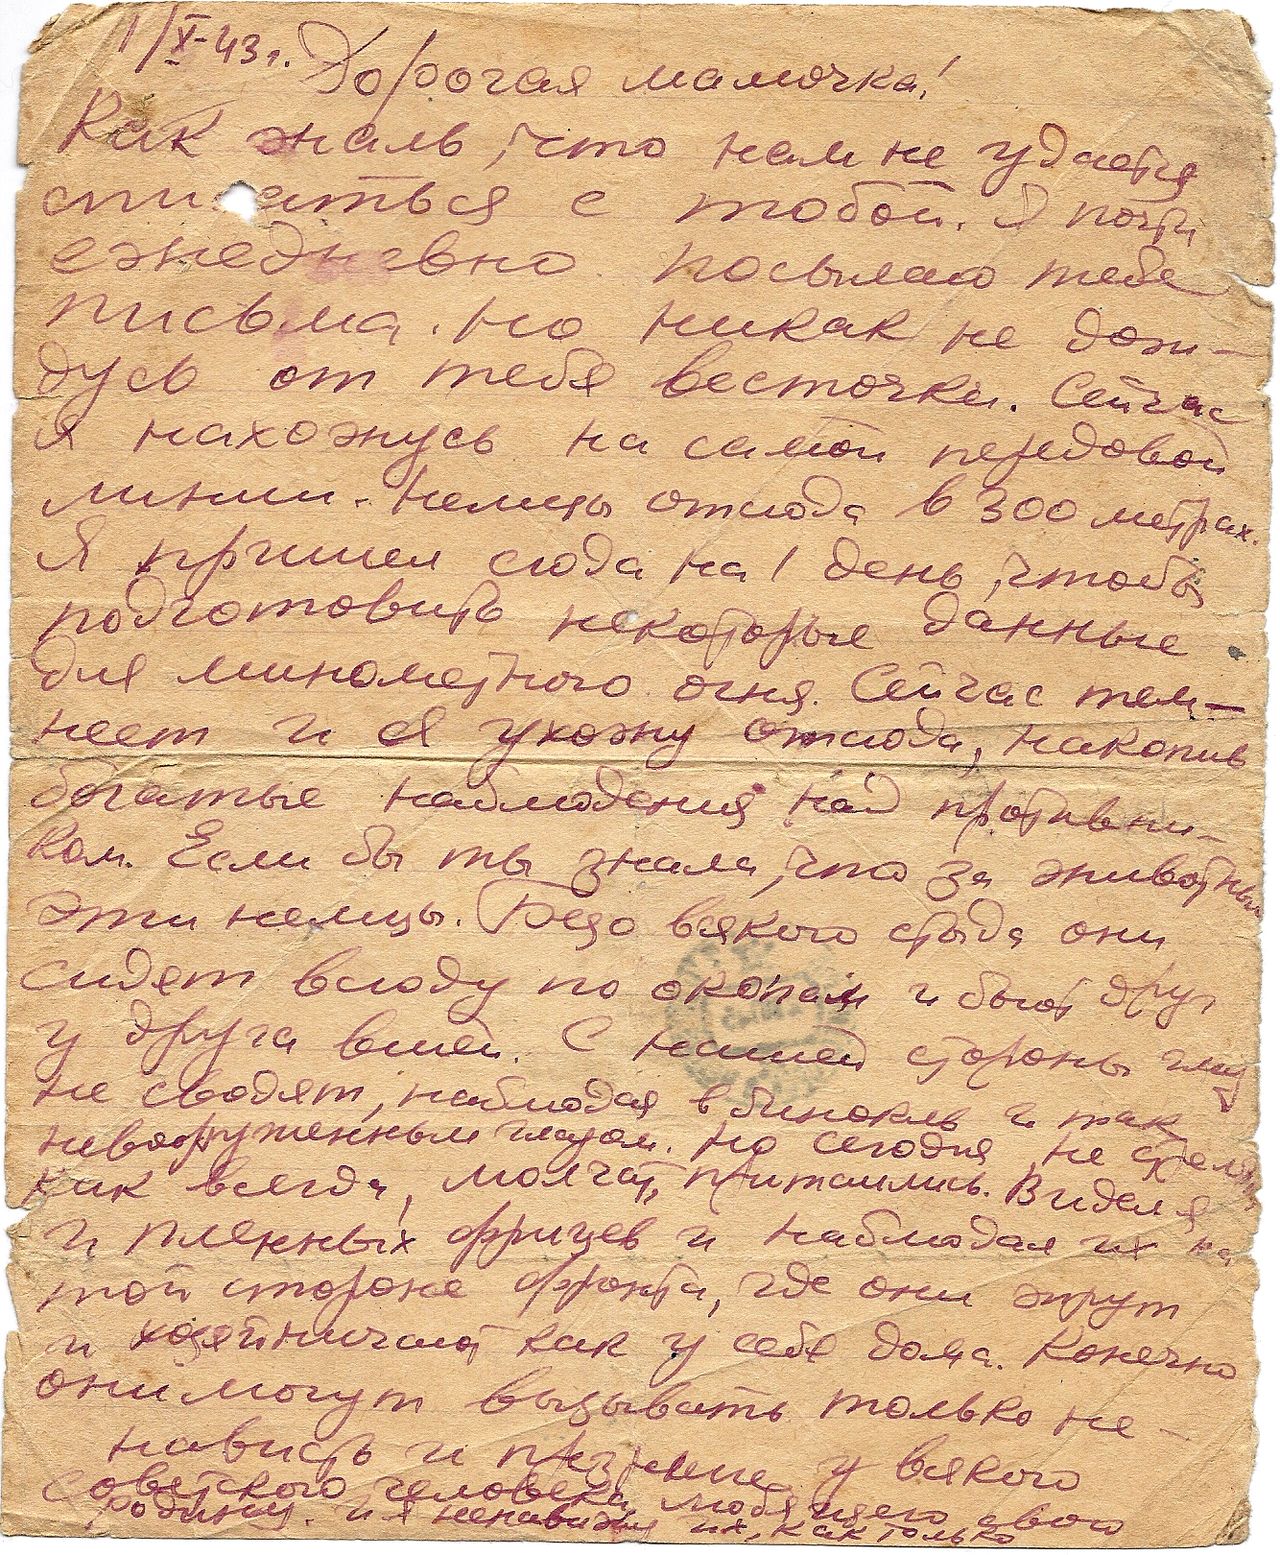 1/X-43 г. Дорогая мамочка!
Как жаль, что нам не удается
списаться с тобой. Я почти
ежедневно посылаю тебе
письма, но никак не дож-
дусь от тебя весточки. Сейчас
я нахожусь на самой передовой
линии. Немцы отсюда в 300 метрах.
Я пришел сюда на 1 день, чтобы
подготовить некоторые данные
для минометного огня. Сейчас тем-
неет и я ухожу отсюда, накопив
богатые наблюдения над противни-
ком. Если бы ты знала, что за животные
эти немцы. Безо всякого стыда они
сидят всюду по окопам и бьют друг
у друга вшей. С нашей стороны глаз
не сводят, наблюдая в бинокль и так
невооруженным глазом. Но сегодня не стреляют
как всегда, молчат, притаились. Видел я
и пленных фрицев и наблюдал их на
той стороне фронта, где они жрут
и хозяйничают как у себя дома. Конечно
они могут вызывать только не-
нависть и презрение у всякого
советского человека, любящего свою
родину. И я ненавижу их, как только